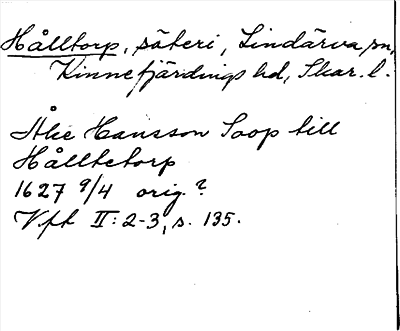 Hålltorp, säteri, Lindärva sn,
Kinnefjärdings hd, Skar. l.
Åke Hansson Soop till
Hålltetorp
1627 9/4 orig.?
Vft II: 2-3, s. 135.